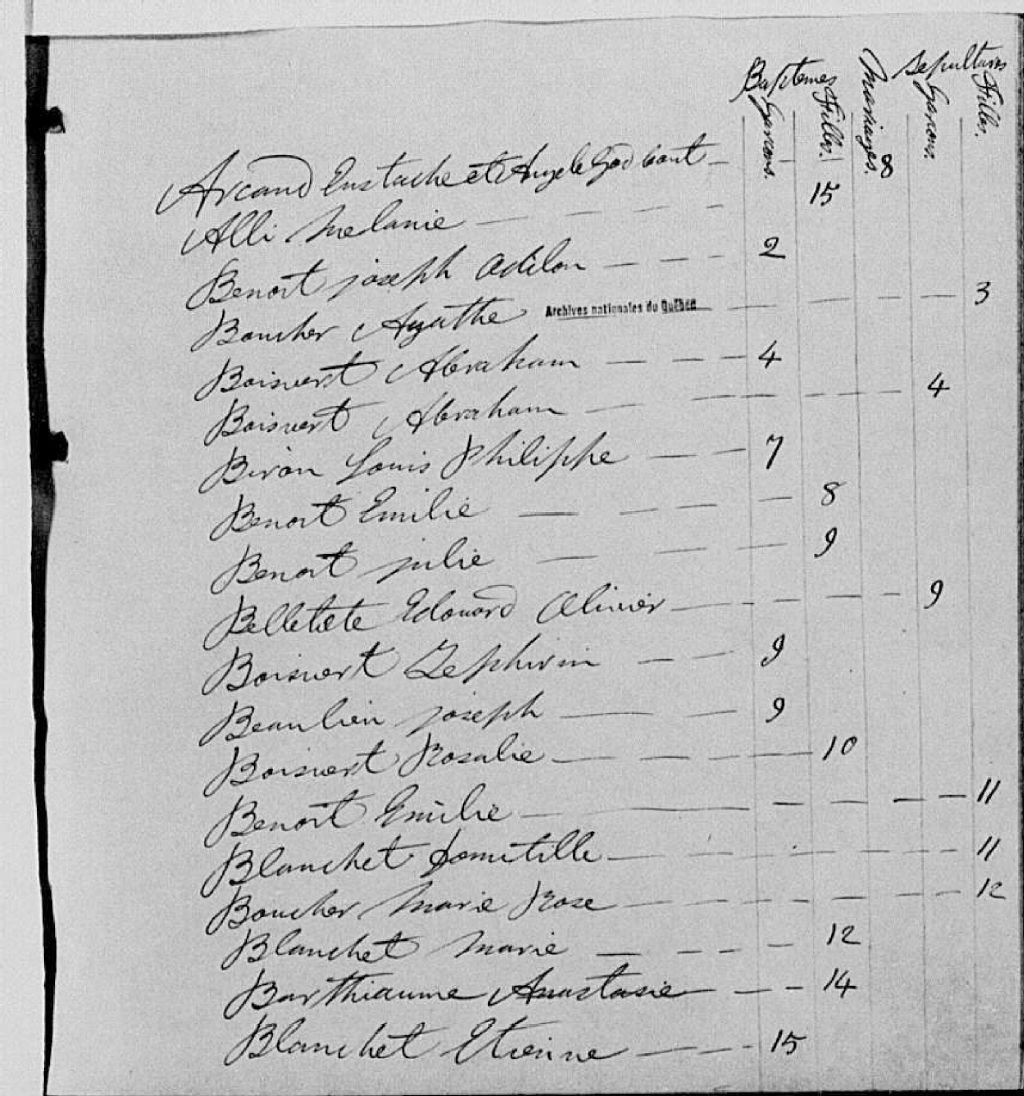 Baptemes Sepultures
Garcons. Filles. Mariages. Garcons. Filles.
Arcand Eustache et Angele Godbout - - 8
Alli Melanie - - - - 15
Benoit joseph Odilon - - - - 2
Boucher Agathe Archives nationales du Québec - - - - - 3
Boisvert Abraham - - - 4
Boisvert Abraham - - - - - - 4
Biron Louis Philippe - - 7
Benoit Emilie - - - - 8
Benoit julie - - - - 9
Belletete Edouard Olivier - - - - - 9
Boisvert Zephirin - - 9
Beaulieu joseph - - 9
Boisvert Rosalie - - - - 10
Benoit Emilie - - - - - - 11
Blanchet Domitille - - - - - - 11
Boucher Marie Rose - - - - - - 12
Blanchet Marie - - - - 12
Barthiaume Anastasie - - 14
Blanchet Etienne - - - 15